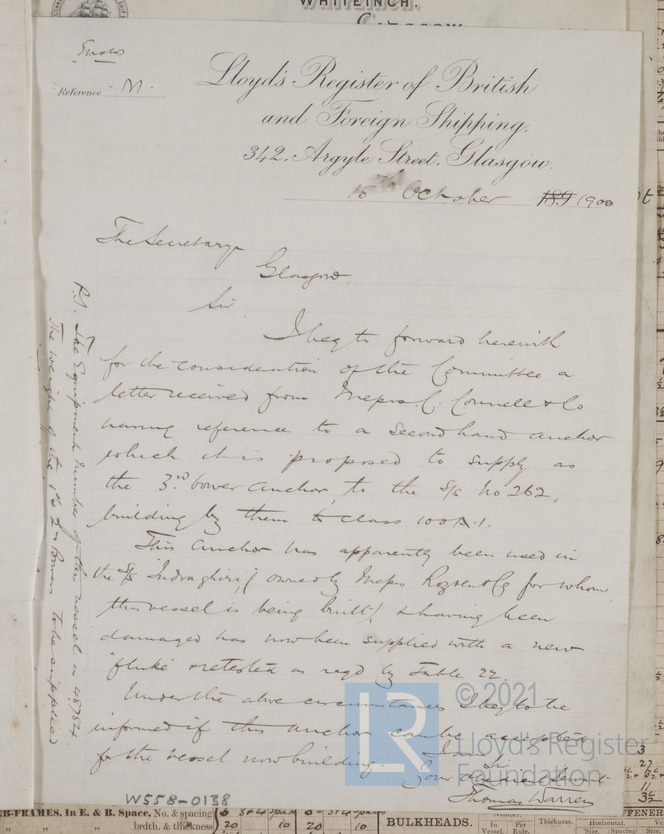 WHITEINCH.
GLASGOW
Encls
Reference M.
Lloyd's Register of British
and Foreign Shipping.
342, Argyle Street, Glasgow.
16th October 189 1900
The Secretary
Glasgow.
Sir
I beg to forward herewith
for the consideration of the Committee a
letter received from Messrs. C. Connell & Co
having reference to a second hand anchor
which it is proposed to supply as
the 3rd bower anchor, to the S/s No 262,
building by them to class 100A.1.
This anchor has apparently been used in
the S/s Indraghiri, (owned by Messrs for whom
this vessel is being built) & having been
damaged has now been supplied with a new
fluke & retested as reqd by Table 22.
Under the above circumstances I beg to be
informed if this anchor can be accepted
for the vessel now building.
I am Sir
Your obedient Servant
Thomas Warren
P.S. The Equipment Number of this vessel is 48754.
The weight of the 1st & 2nd Bowers to be supplied
© 2021
LR
Lloyd's Register
Foundation
W558-0138
R-FRAMES, In E. & B. Space, No. & spacing
brdth. & thickness
BULKHEADS.
In Vessel.
Per Rule.
Thickness.
Horizontal.
Size.
Spacing